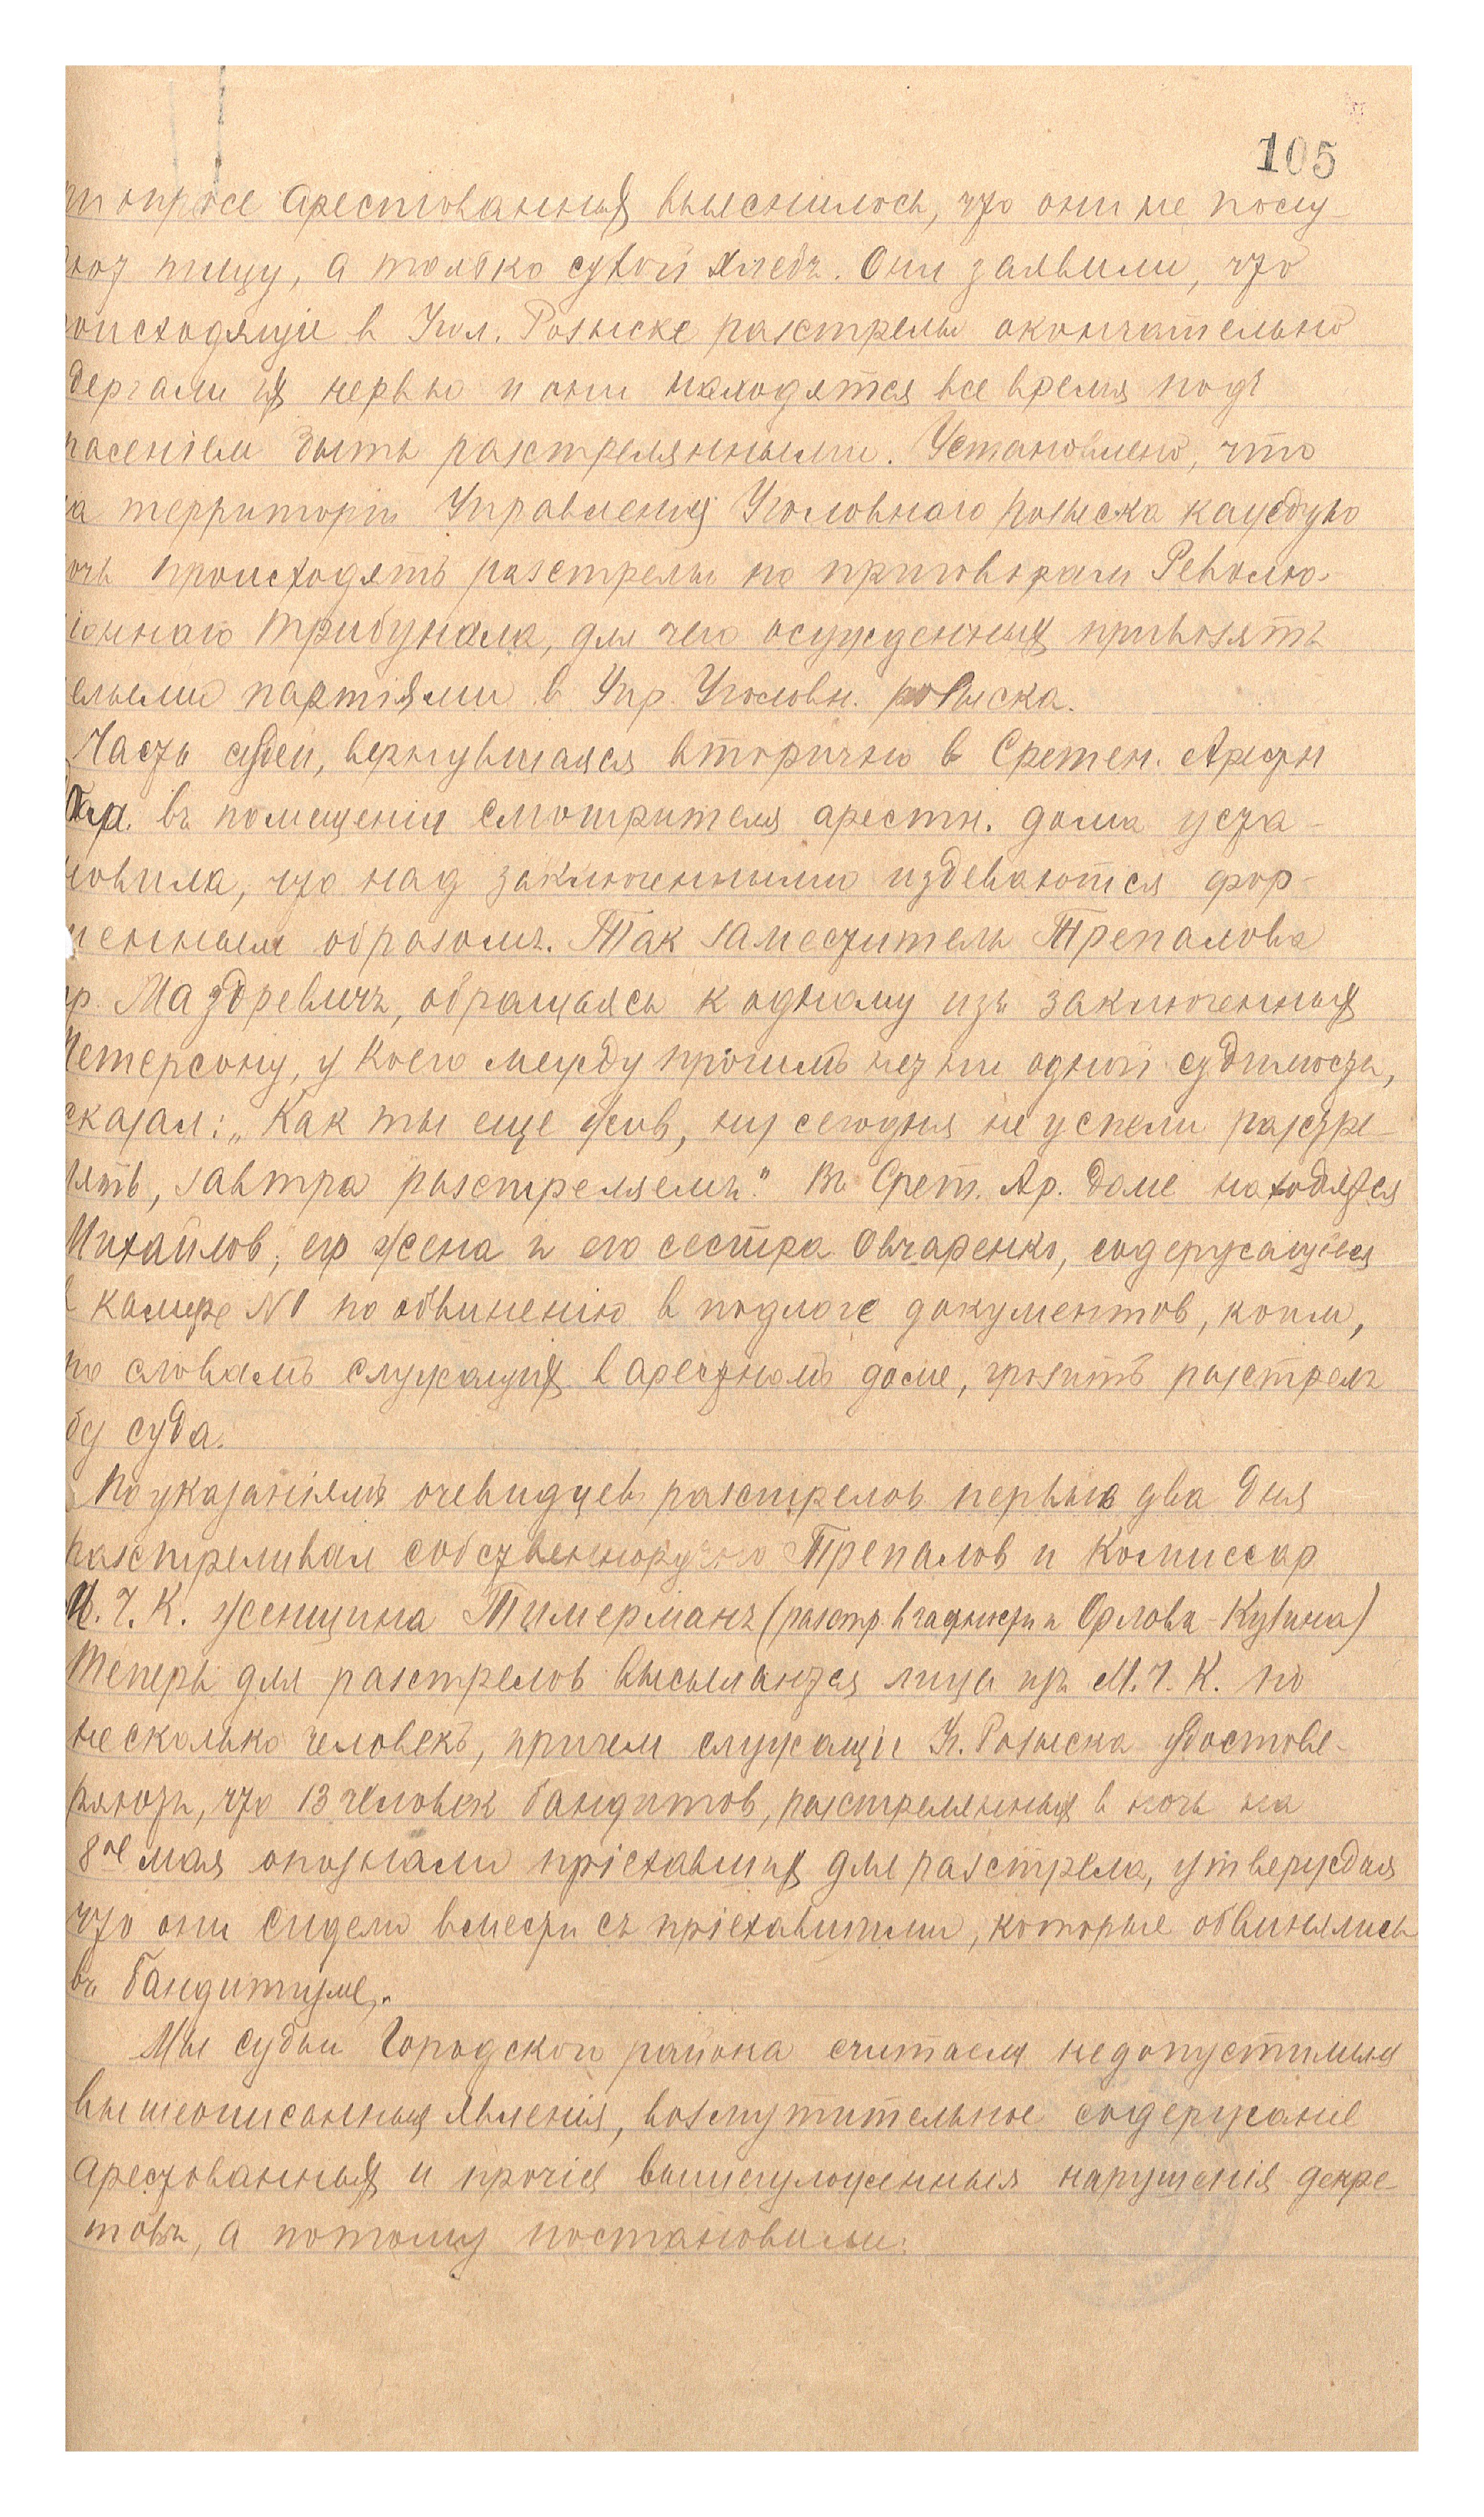 105
опросе арестованных выяснилось, что они не полу-
пищу, а только сухой хлебъ. Они заявили, что
оисходящіе в Угол. Розыске разстрелы окончательно
дергали их нервы и они находятся все время подъ
пасеніем быть разстрелянными. Установлено, что
а территоріи Управления Уголовнаго розыска каждую
очь происходятъ разстрелы по приговорам Револю-
ціоннаго трибунала, для чего осужденных привозятъ
елыми партіями в Упр. Уголовн. розыска.
Часть судей, вернувшаяся вторично в Сретен. Арестн
въ помещеніи смотрителя арестн. дома уста-
новила, что над заключенными издеваются фор-
менным образомъ. Так заместитель Трепалова
гр. Маздревичъ, обращаясь к одному изъ заключенных
Петерсону, у коего между прочимъ нетъ ни одной судимости,
сказал: „Как ты еще жив, ну сегодня не успели разстре-
лять, завтра разстреляемъ." Въ Срет. Ар. доме находятся
Михайлов, его жена и его сестра Овчаренко, содержащіеся
в камере №1 по обвиненію в подлоге документов, коим,
по словамъ служащих в арестномъ доме, грозитъ разстрелъ
без суда.
По указаніямъ очевидцев разстрелов первые два дня
разстреливал собственноручно Трепалов и Комиссар
М. Ч. К. женщина Тимерманъ (разстр. в частности и Орлова-Кузина)
Теперь для разстрелов высылаются лица изъ М. Ч. К. по
несколько человекъ, причем служащіе У. Розыска удостове-
ряютъ, что 13 человек бандитов, разстрелянных в ночь на
8ое мая опознали пріехавших для разстрела, утверждая
что они сидели вместе съ пріехавшими, которые обвинялись
въ бандитизме.
Мы судьи Городского района считаем недопустимым
вышеописанныя явленія, возмутительное содержаніе
арестованных и прочія вышеизложенныя нарушенія декре-
товъ, а потому постановили: